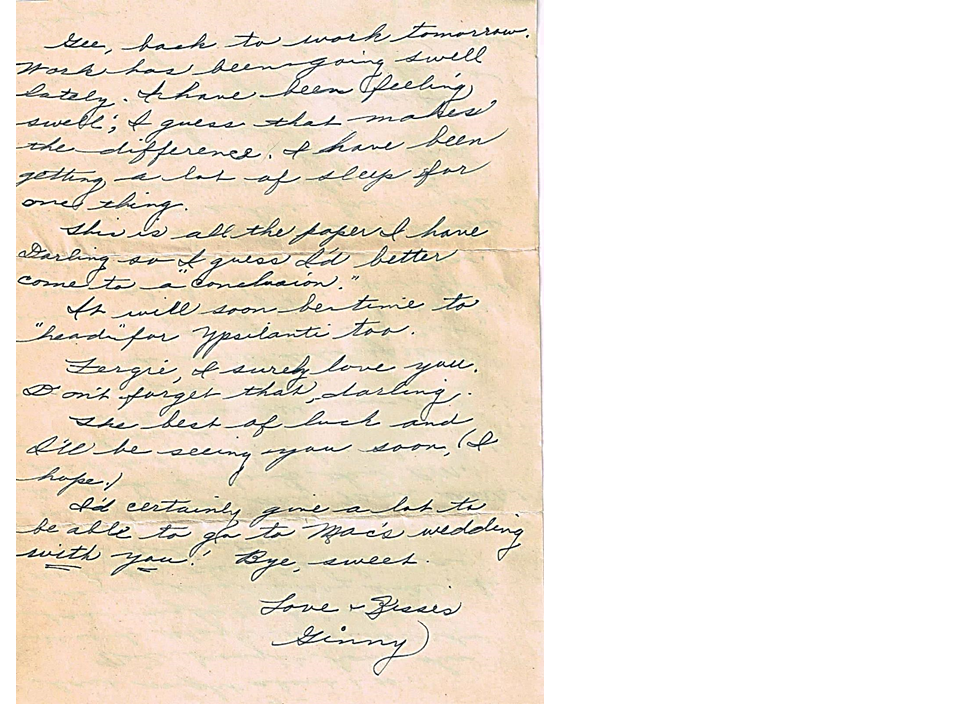 Gee, back to work tomorrow.
Work has been going swell
lately. I have been feeling
swell; I guess that makes
the difference. I have been
getting a lot of sleep for
one thing.
This is all the paper I have
Darling so I guess I'd better
come to a "conclusion."
It will soon be time to
"head" for Ypsilanti too.
Fergie, I surely love you.
Don't forget that, darling.
The best of luck and
I'll be seeing you soon, (I
hope.)
I'd certainly give a lot to
be able to go to Mac's wedding
with you! Bye, sweet.
Love + Kisses
Ginny